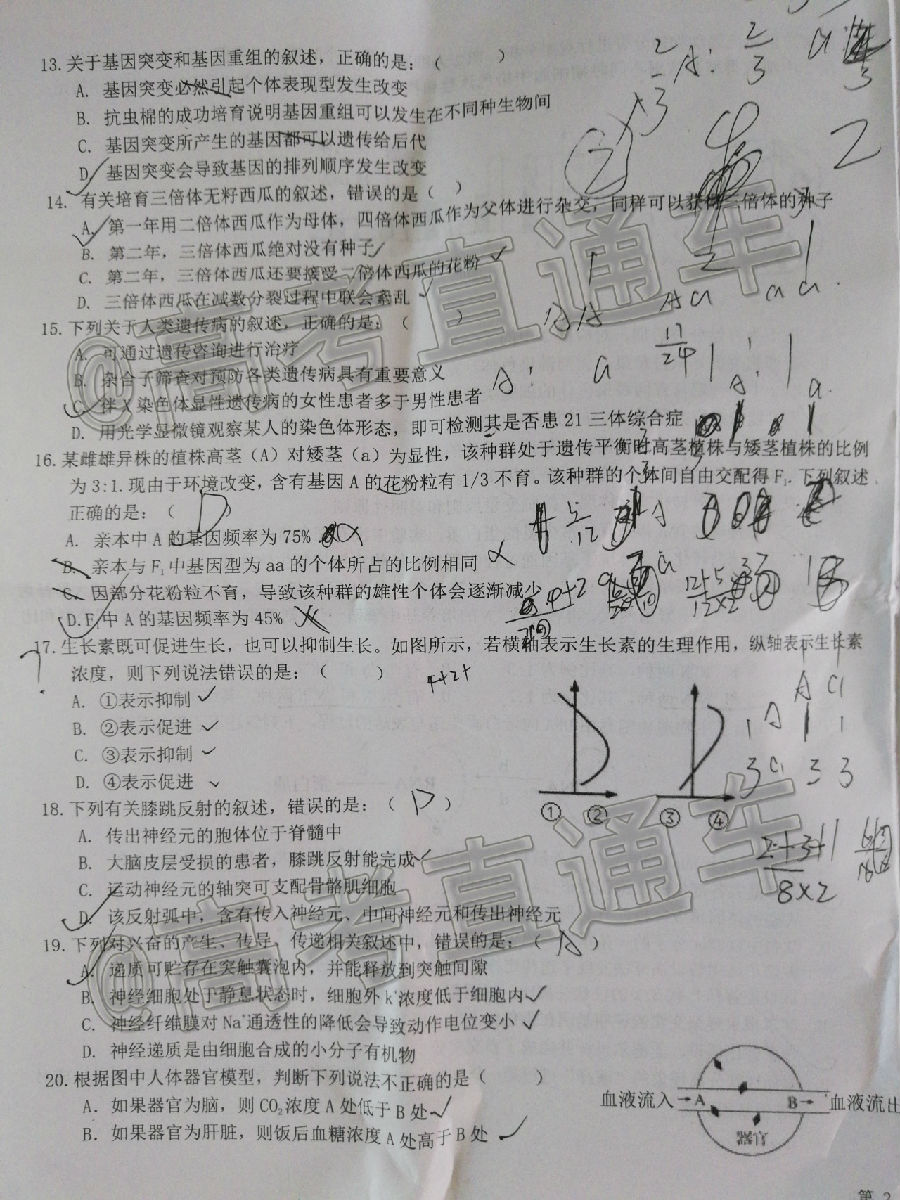 13. 关于基因突变和基因重组的叙述，正确的是：（　　）
A. 基因突变必然引起个体表现型发生改变
B. 抗虫棉的成功培育说明基因重组可以发生在不同种生物间
C. 基因突变所产生的基因都可以遗传给后代
D. 基因突变会导致基因的排列顺序发生改变
14. 有关培育三倍体无籽西瓜的叙述，错误的是（　　）
A. 第一年用二倍体西瓜作为母体，四倍体西瓜作为父体进行杂交，同样可以获得三倍体的种子
B. 第二年，三倍体西瓜绝对没有种子
C. 第二年，三倍体西瓜还要接受二倍体西瓜的花粉
D. 三倍体西瓜在减数分裂过程中联会紊乱
15. 下列关于人类遗传病的叙述，正确的是：（　　）
A. 可通过遗传咨询进行治疗
B. 杂合子筛查对预防各类遗传病具有重要意义
C. 伴X染色体显性遗传病的女性患者多于男性患者
D. 用光学显微镜观察某人的染色体形态，即可检测其是否患21三体综合症
16. 某雌雄异株的植株高茎（A）对矮茎（a）为显性，该种群处于遗传平衡时高茎植株与矮茎植株的比例
为3:1.现由于环境改变，含有基因A的花粉粒有1/3不育。该种群的个体间自由交配得F₁.下列叙述
正确的是：（ D ）
A. 亲本中A的基因频率为75%
B. 亲本与F₁中基因型为aa的个体所占的比例相同
C. 因部分花粉粒不育，导致该种群的雄性个体会逐渐减少
D.F₁中A的基因频率为45%
17. 生长素既可促进生长，也可以抑制生长。如图所示，若横轴表示生长素的生理作用，纵轴表示生长素
浓度，则下列说法错误的是：（　　）
A. ①表示抑制
B. ②表示促进
C. ③表示抑制
D. ④表示促进
① ② ③ ④
18. 下列有关膝跳反射的叙述，错误的是：（ D ）
A. 传出神经元的胞体位于脊髓中
B. 大脑皮层受损的患者，膝跳反射能完成
C. 运动神经元的轴突可支配骨骼肌细胞
D. 该反射弧中，含有传入神经元、中间神经元和传出神经元
19. 下列对兴奋的产生、传导、传递相关叙述中，错误的是：（ A ）
A. 递质可贮存在突触囊泡内，并能释放到突触间隙
B. 神经细胞处于静息状态时，细胞外k⁺浓度低于细胞内
C. 神经纤维膜对Na⁺通透性的降低会导致动作电位变小
D. 神经递质是由细胞合成的小分子有机物
20. 根据图中人体器官模型，判断下列说法不正确的是（　　）
A. 如果器官为脑，则CO₂浓度A处低于B处
B. 如果器官为肝脏，则饭后血糖浓度A处高于B处
血液流入 A B 血液流出
器官
第 2
@高考直通车
@高考直通车